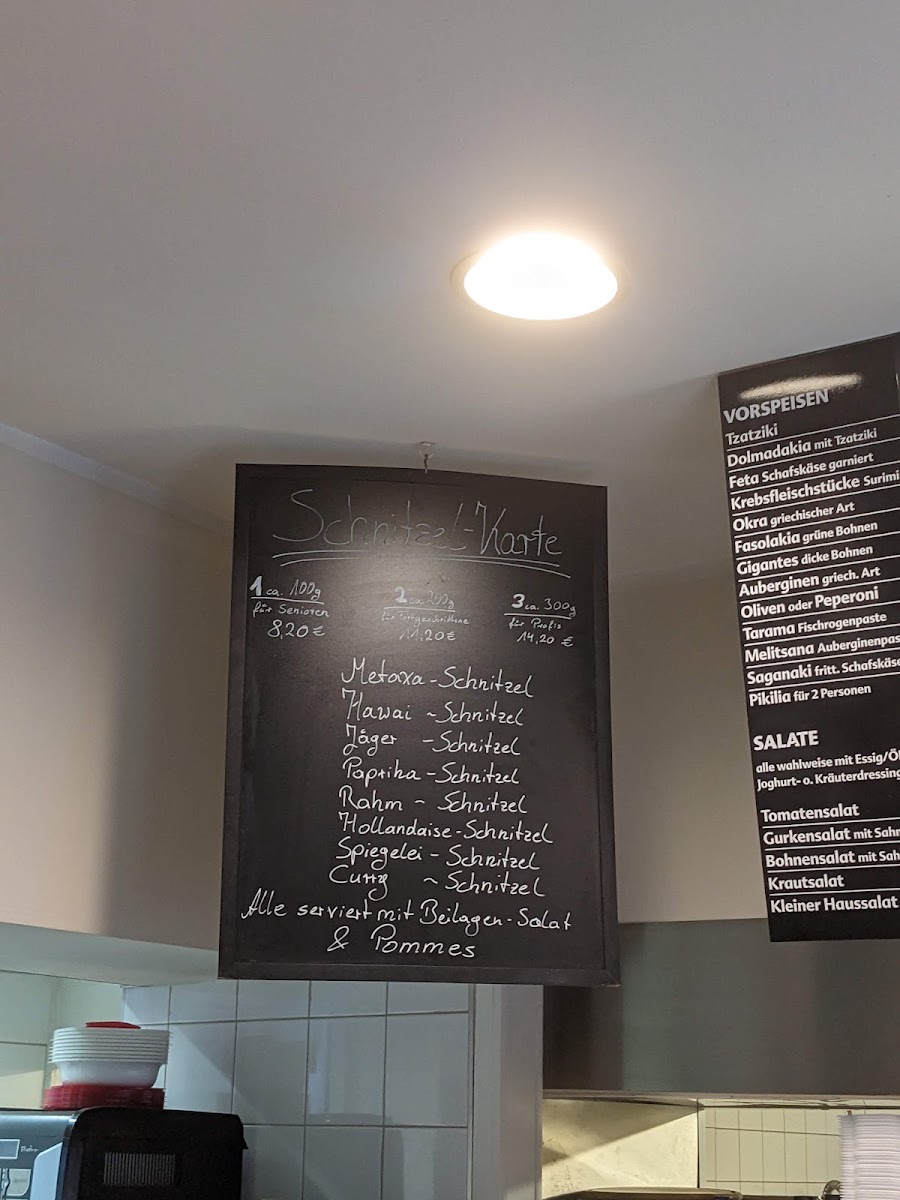 Schnitzel-Karte
1 ca. 100g
für Senioren
8,20 €
2 ca. 200g
für Fortgeschrittene
11,20 €
3 ca. 300g
für Profis
14,20 €
Metaxa - Schnitzel
Hawai ~ Schnitzel
Jäger - Schnitzel
Paprika - Schnitzel
Rahm ~ Schnitzel
Hollandaise - Schnitzel
Spiegelei - Schnitzel
Curry ~ Schnitzel
Alle serviert mit Beilagen-Salat
& Pommes
VORSPEISEN
Tzatziki
Dolmadakia mit Tzatziki
Feta Schafskäse garniert
Krebsfleischstücke Surimi
Okra griechischer Art
Fasolakia grüne Bohnen
Gigantes dicke Bohnen
Auberginen griech. Art
Oliven oder Peperoni
Tarama Fischrogenpaste
Melitsana Auberginenpas
Saganaki fritt. Schafskäse
Pikilia für 2 Personen
SALATE
alle wahlweise mit Essig/Öl
Joghurt- o. Kräuterdressing
Tomatensalat
Gurkensalat mit Sahn
Bohnensalat mit Sah
Krautsalat
Kleiner Haussalat